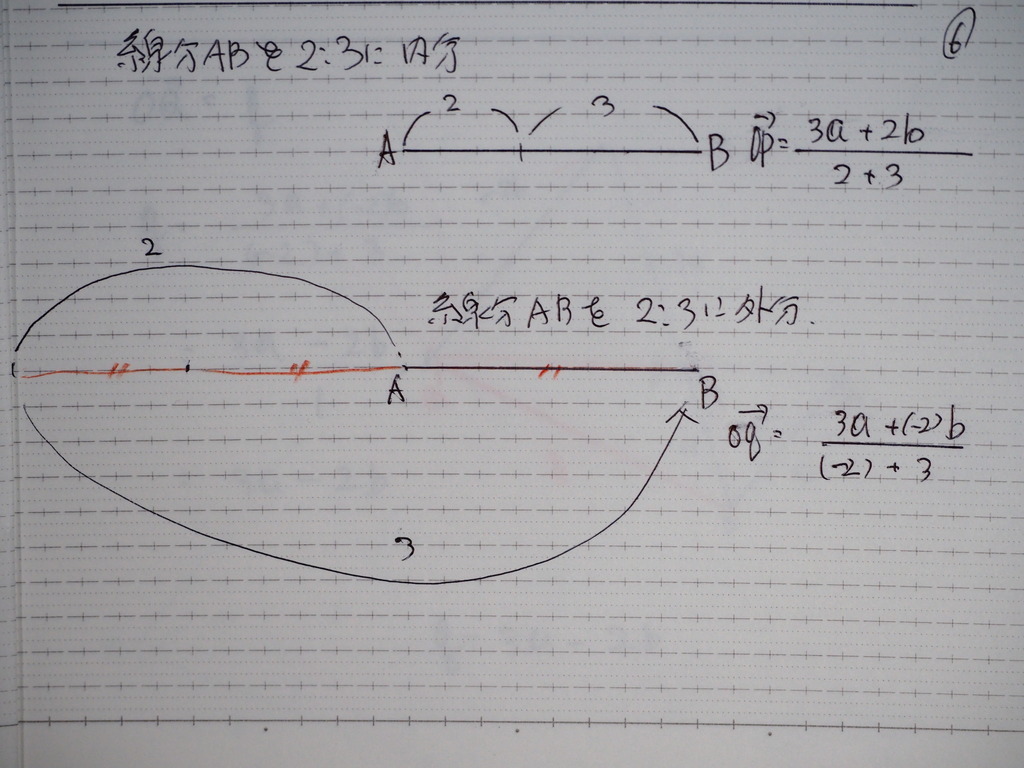 ⑥
線分ABを2:3に内分
2 3
A B Op→= 3a+2b / 2+3
2
線分ABを 2:3に外分.
A B
oq→= 3a+(-2)b / (-2)+3
3